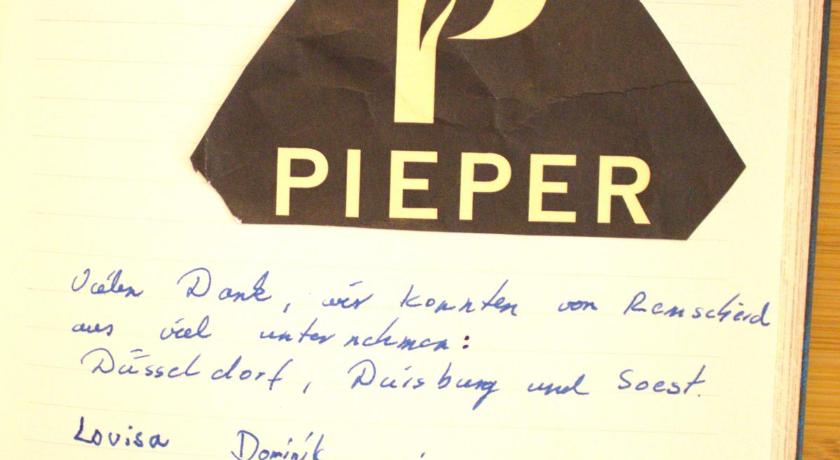 P
PIEPER
Vielen Dank, wir konnten von Remscheid
aus viel unternehmen:
Düsseldorf, Duisburg und Soest.
Lovisa Dominik